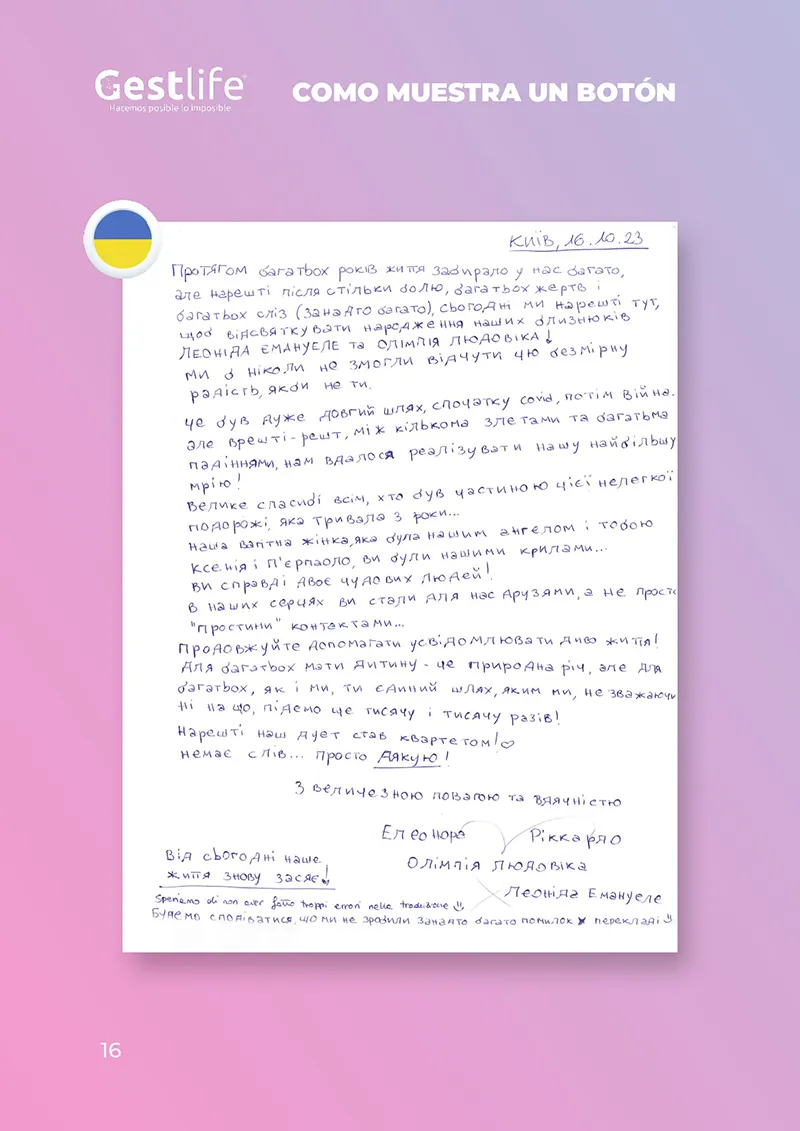 Gestlife
Hacemos posible lo imposible
COMO MUESTRA UN BOTÓN
КИЇВ, 16.10.23
Протягом багатьох років життя забирало у нас багато,
але нарешті після стільки болю, багатьох жертв і
багатьох сліз (занадто багато), сьогодні ми нарешті тут,
щоб відсвяткувати народження наших близнюків
ЛЕОНІДА ЕМАНУЕЛЕ та ОЛІМПІЯ ЛЮДОВІКА!
Ми б ніколи не змогли відчути цю безмірну
радість, якби не ти.
Це був дуже довгий шлях, спочатку covid, потім війна.
але врешті-решт, між кількома злетами та багатьма
падіннями, нам вдалося реалізувати нашу найбільшу
мрію!
Велике спасибі всім, хто був частиною цієї нелегкої
подорожі, яка тривала 3 роки...
Наша вагітна жінка, яка була нашим ангелом і тобою
Ксенія і П'єрпаоло, ви були нашими крилами...
Ви справді двоє чудових людей!
В наших серцях ви стали для нас друзями, а не просто
"простини" контактами...
Продовжуйте допомагати усвідомлювати диво життя!
Для багатьох мати дитину - це природна річ, але для
багатьох, як і ми, ти єдиний шлях, яким ми, не зважаючи
ні на що, підемо ще тисячу і тисячу разів!
Нарешті наш дует став квартетом!
Немає слів... просто ДЯКУЮ!
З величезною повагою та вдячністю
Елеонора Ріккардо
Олімпія Людовіка
Леоніда Емануеле
Від сьогодні наше
життя знову засяє!
Speriamo di non aver fatto troppi errori nella traduzione
Будемо сподіватися, що ми не зробили занадто багато помилок в перекладі
16